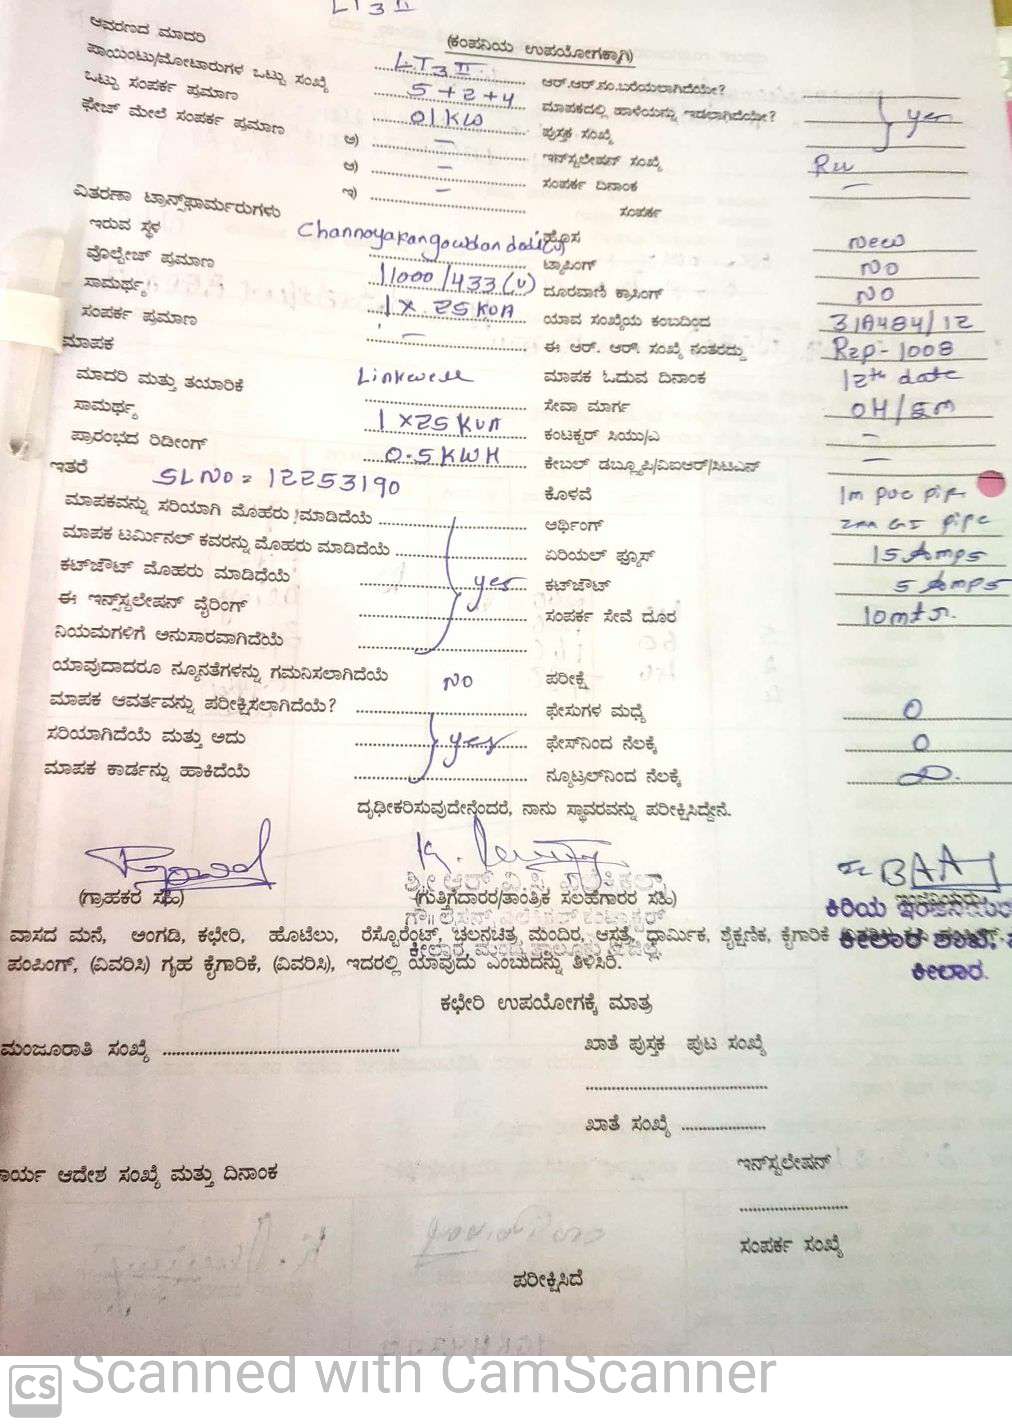 LT3 II
ಆವರಣದ ಮಾದರಿ
(ಕಂಪನಿಯ ಉಪಯೋಗಕ್ಕಾಗಿ)
ಪಾಯಿಂಟು/ಮೋಟಾರುಗಳ ಒಟ್ಟು ಸಂಖ್ಯೆ LT3 II ಆರ್.ಆರ್.ನಂ.ಬರೆಯಲಾಗಿದೆಯೇ?
ಒಟ್ಟು ಸಂಪರ್ಕ ಪ್ರಮಾಣ 5+2+4 ಮಾಪಕದಲ್ಲಿ ಹಾಳೆಯನ್ನು ಇಡಲಾಗಿದೆಯೇ? yes
ಫೇಜ್ ಮೇಲೆ ಸಂಪರ್ಕ ಪ್ರಮಾಣ 01KW ಪುಸ್ತಕ ಸಂಖ್ಯೆ
ಅ) – ಇನ್‌ಸ್ಟಲೇಷನ್ ಸಂಖ್ಯೆ
ಆ) – ಸಂಪರ್ಕ ದಿನಾಂಕ –
ಇ) – ಸಂಪರ್ಕ
ವಿತರಣಾ ಟ್ರಾನ್ಸ್‌ಫಾರ್ಮರುಗಳು
ಇರುವ ಸ್ಥಳ ಹೊಸ New
ವೊಲ್ಟೇಜ್ ಪ್ರಮಾಣ ಟ್ಯಾಪಿಂಗ್ NO
ಸಾಮರ್ಥ್ಯ 11000/433(V) ದೂರವಾಣಿ ಕ್ರಾಸಿಂಗ್ NO
ಸಂಪರ್ಕ ಪ್ರಮಾಣ 1 X 25 KVA ಯಾವ ಸಂಖ್ಯೆಯ ಕಂಬದಿಂದ 31A484/12
ಮಾಪಕ – ಈ ಆರ್. ಆರ್. ಸಂಖ್ಯೆ ನಂತರದ್ದು Rzp-1008
ಮಾದರಿ ಮತ್ತು ತಯಾರಿಕೆ Linkwell ಮಾಪಕ ಓದುವ ದಿನಾಂಕ 12th date
ಸಾಮರ್ಥ್ಯ 1 X25 KVA ಸೇವಾ ಮಾರ್ಗ
ಪ್ರಾರಂಭದ ರಿಡೀಂಗ್ 0.5KWH ಕಂಟಕ್ಟರ್ ಸಿಯು/ಎ –
ಇತರೆ SL NO = 12253190 ಕೇಬಲ್ ಡಬ್ಲೂಪಿ/ವಿಐಆರ್/ಸಿಟಿಎಸ್ –
ಮಾಪಕವನ್ನು ಸರಿಯಾಗಿ ಮೊಹರು ಮಾಡಿದೆಯೆ ಕೊಳವೆ 1m pvc pipe
ಮಾಪಕ ಟರ್ಮಿನಲ್ ಕವರನ್ನು ಮೊಹರು ಮಾಡಿದೆಯೆ ಆರ್ಥಿಂಗ್ GI pipe
ಕಟ್‌ಔಟ್ ಮೊಹರು ಮಾಡಿದೆಯೆ yes ಏರಿಯಲ್ ಫ್ಯೂಸ್ 15 Amps
ಈ ಇನ್ಸ್‌ಸ್ಟಲೇಷನ್ ವೈರಿಂಗ್ ಕಟ್‌ಔಟ್ 5 Amps
ನಿಯಮಗಳಿಗೆ ಅನುಸಾರವಾಗಿದೆಯೆ ಸಂಪರ್ಕ ಸೇವೆ ದೂರ 10mts.
ಯಾವುದಾದರೂ ನ್ಯೂನತೆಗಳನ್ನು ಗಮನಿಸಲಾಗಿದೆಯೆ NO ಪರೀಕ್ಷೆ
ಮಾಪಕ ಆವರ್ತವನ್ನು ಪರೀಕ್ಷಿಸಲಾಗಿದೆಯೆ? ಫೇಸುಗಳ ಮಧ್ಯೆ 0
ಸರಿಯಾಗಿದೆಯೆ ಮತ್ತು ಅದು yes ಫೇಸ್‌ನಿಂದ ನೆಲಕ್ಕೆ 0
ಮಾಪಕ ಕಾರ್ಡನ್ನು ಹಾಕಿದೆಯೆ ನ್ಯೂಟ್ರಲ್‌ನಿಂದ ನೆಲಕ್ಕೆ
ದೃಢೀಕರಿಸುವುದೇನೆಂದರೆ, ನಾನು ಸ್ಥಾವರವನ್ನು ಪರೀಕ್ಷಿಸಿದ್ದೇನೆ.
(ಗ್ರಾಹಕರ ಸಹಿ) (ಗುತ್ತಿಗೆದಾರರ/ತಾಂತ್ರಿಕ ಸಲಹೆಗಾರರ ಸಹಿ)
ವಾಸದ ಮನೆ, ಅಂಗಡಿ, ಕಛೇರಿ, ಹೊಟೆಲು, ರೆಸ್ಟೊರೆಂಟ್, ಚಲನಚಿತ್ರ ಮಂದಿರ, ಆಸ್ಪತ್ರೆ, ಧಾರ್ಮಿಕ, ಶೈಕ್ಷಣಿಕ, ಕೈಗಾರಿಕೆ ಕೀಲಾರ ಶಾಖೆ,
ಪಂಪಿಂಗ್, (ವಿವರಿಸಿ) ಗೃಹ ಕೈಗಾರಿಕೆ, (ವಿವರಿಸಿ), ಇದರಲ್ಲಿ ಯಾವುದು ಎಂಬುದನ್ನು ತಿಳಿಸಿರಿ. ಕೀಲಾರ.
ಕಛೇರಿ ಉಪಯೋಗಕ್ಕೆ ಮಾತ್ರ
ಮಂಜೂರಾತಿ ಸಂಖ್ಯೆ ಖಾತೆ ಪುಸ್ತಕ ಪುಟ ಸಂಖ್ಯೆ
ಖಾತೆ ಸಂಖ್ಯೆ
ಇನ್‌ಸ್ಟಲೇಷನ್
ಆದೇಶ ಸಂಖ್ಯೆ ಮತ್ತು ದಿನಾಂಕ
ಸಂಪರ್ಕ ಸಂಖ್ಯೆ
ಪರೀಕ್ಷಿಸಿದೆ
CS Scanned with CamScanner